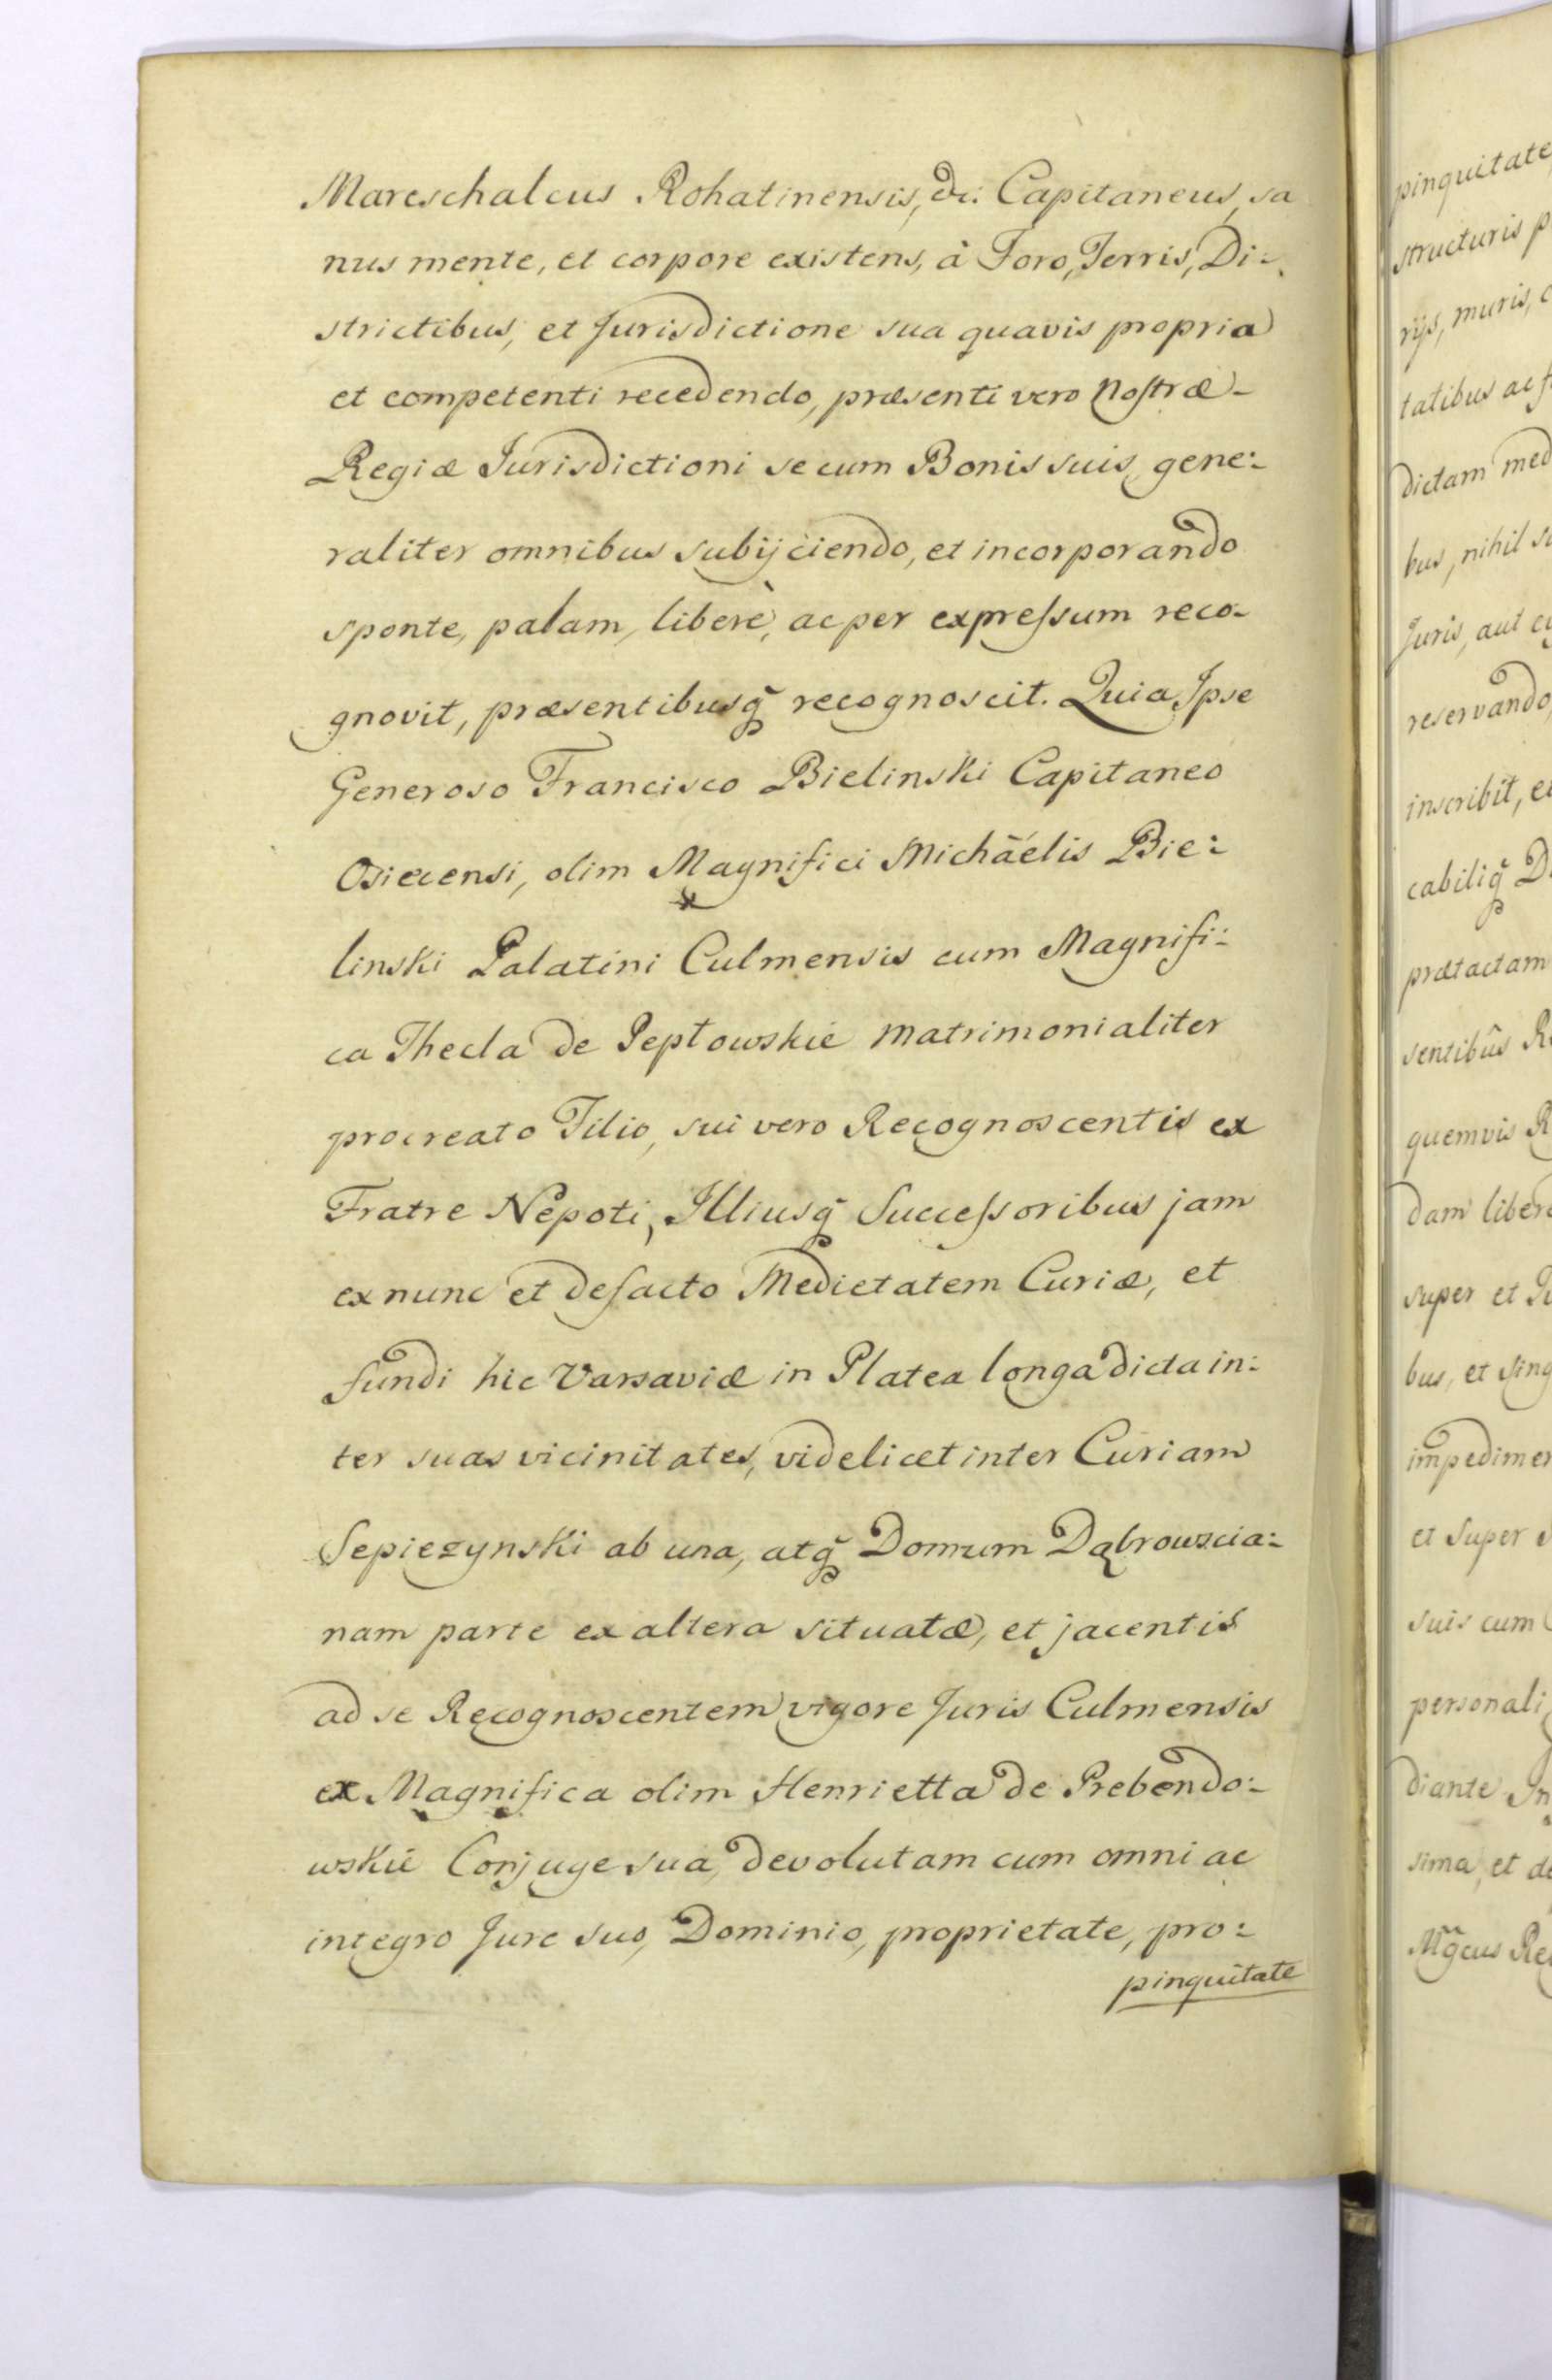 Mareschalcus Rohatinensis, &c: Capitaneus, sa
nus mente, et corpore existens, à Foro, Terris, Di-
strictibus, et Jurisdictione sua quavis propria
et competenti recedendo, præsenti vero Nostræ-
Regiæ Jurisdictioni se cum Bonis suis gene:
raliter omnibus subijciendo, et incorporando
sponte, palam, liberè, ac per expressum reco-
gnovit, præsentibusq̃ recognoscit. Quia Ipse
Generoso Francisco Bielinski Capitaneo
Osiecensi, olim Magnifici Michaélis Bie:
linski Palatini Culmensis cum Magnifi:
ca Thecla de Peptowskie matrimonialiter
procreato Filio, sui vero Recognoscentis ex
Fratre Nepoti, Illiusq̃ Successoribus jam
ex nunc et de facto Medietatem Curiæ, et
fundi hic Varsaviæ in Platea longa dicta in:
ter suas vicinitates, videlicet inter Curiam
Sepieżynski ab una, atq̃ Domum Dąbrowscia:
nam parte ex altera situatæ, et jacentis
ad se Recognoscentem vigore Juris Culmensis
ex Magnifica olim Henrietta de Prebendo:
wskie Conjuge sua, devolutam cum omni ac
integro Jure suo, Dominio, proprietate, pro:
pinquitate
pinquitate
structuris p
rijs, muris, c
tatibus ac f
dictam med
bus, nihil s
Juris, aut
reservando,
inscribit, e
cabiliq̃ D
prætactam
sentibûs R
quemvis R
dam liber
super et
bus, et sing
impedimen
et super
suis cum
personali
diante In
sima, et d
Mg̃cus Re